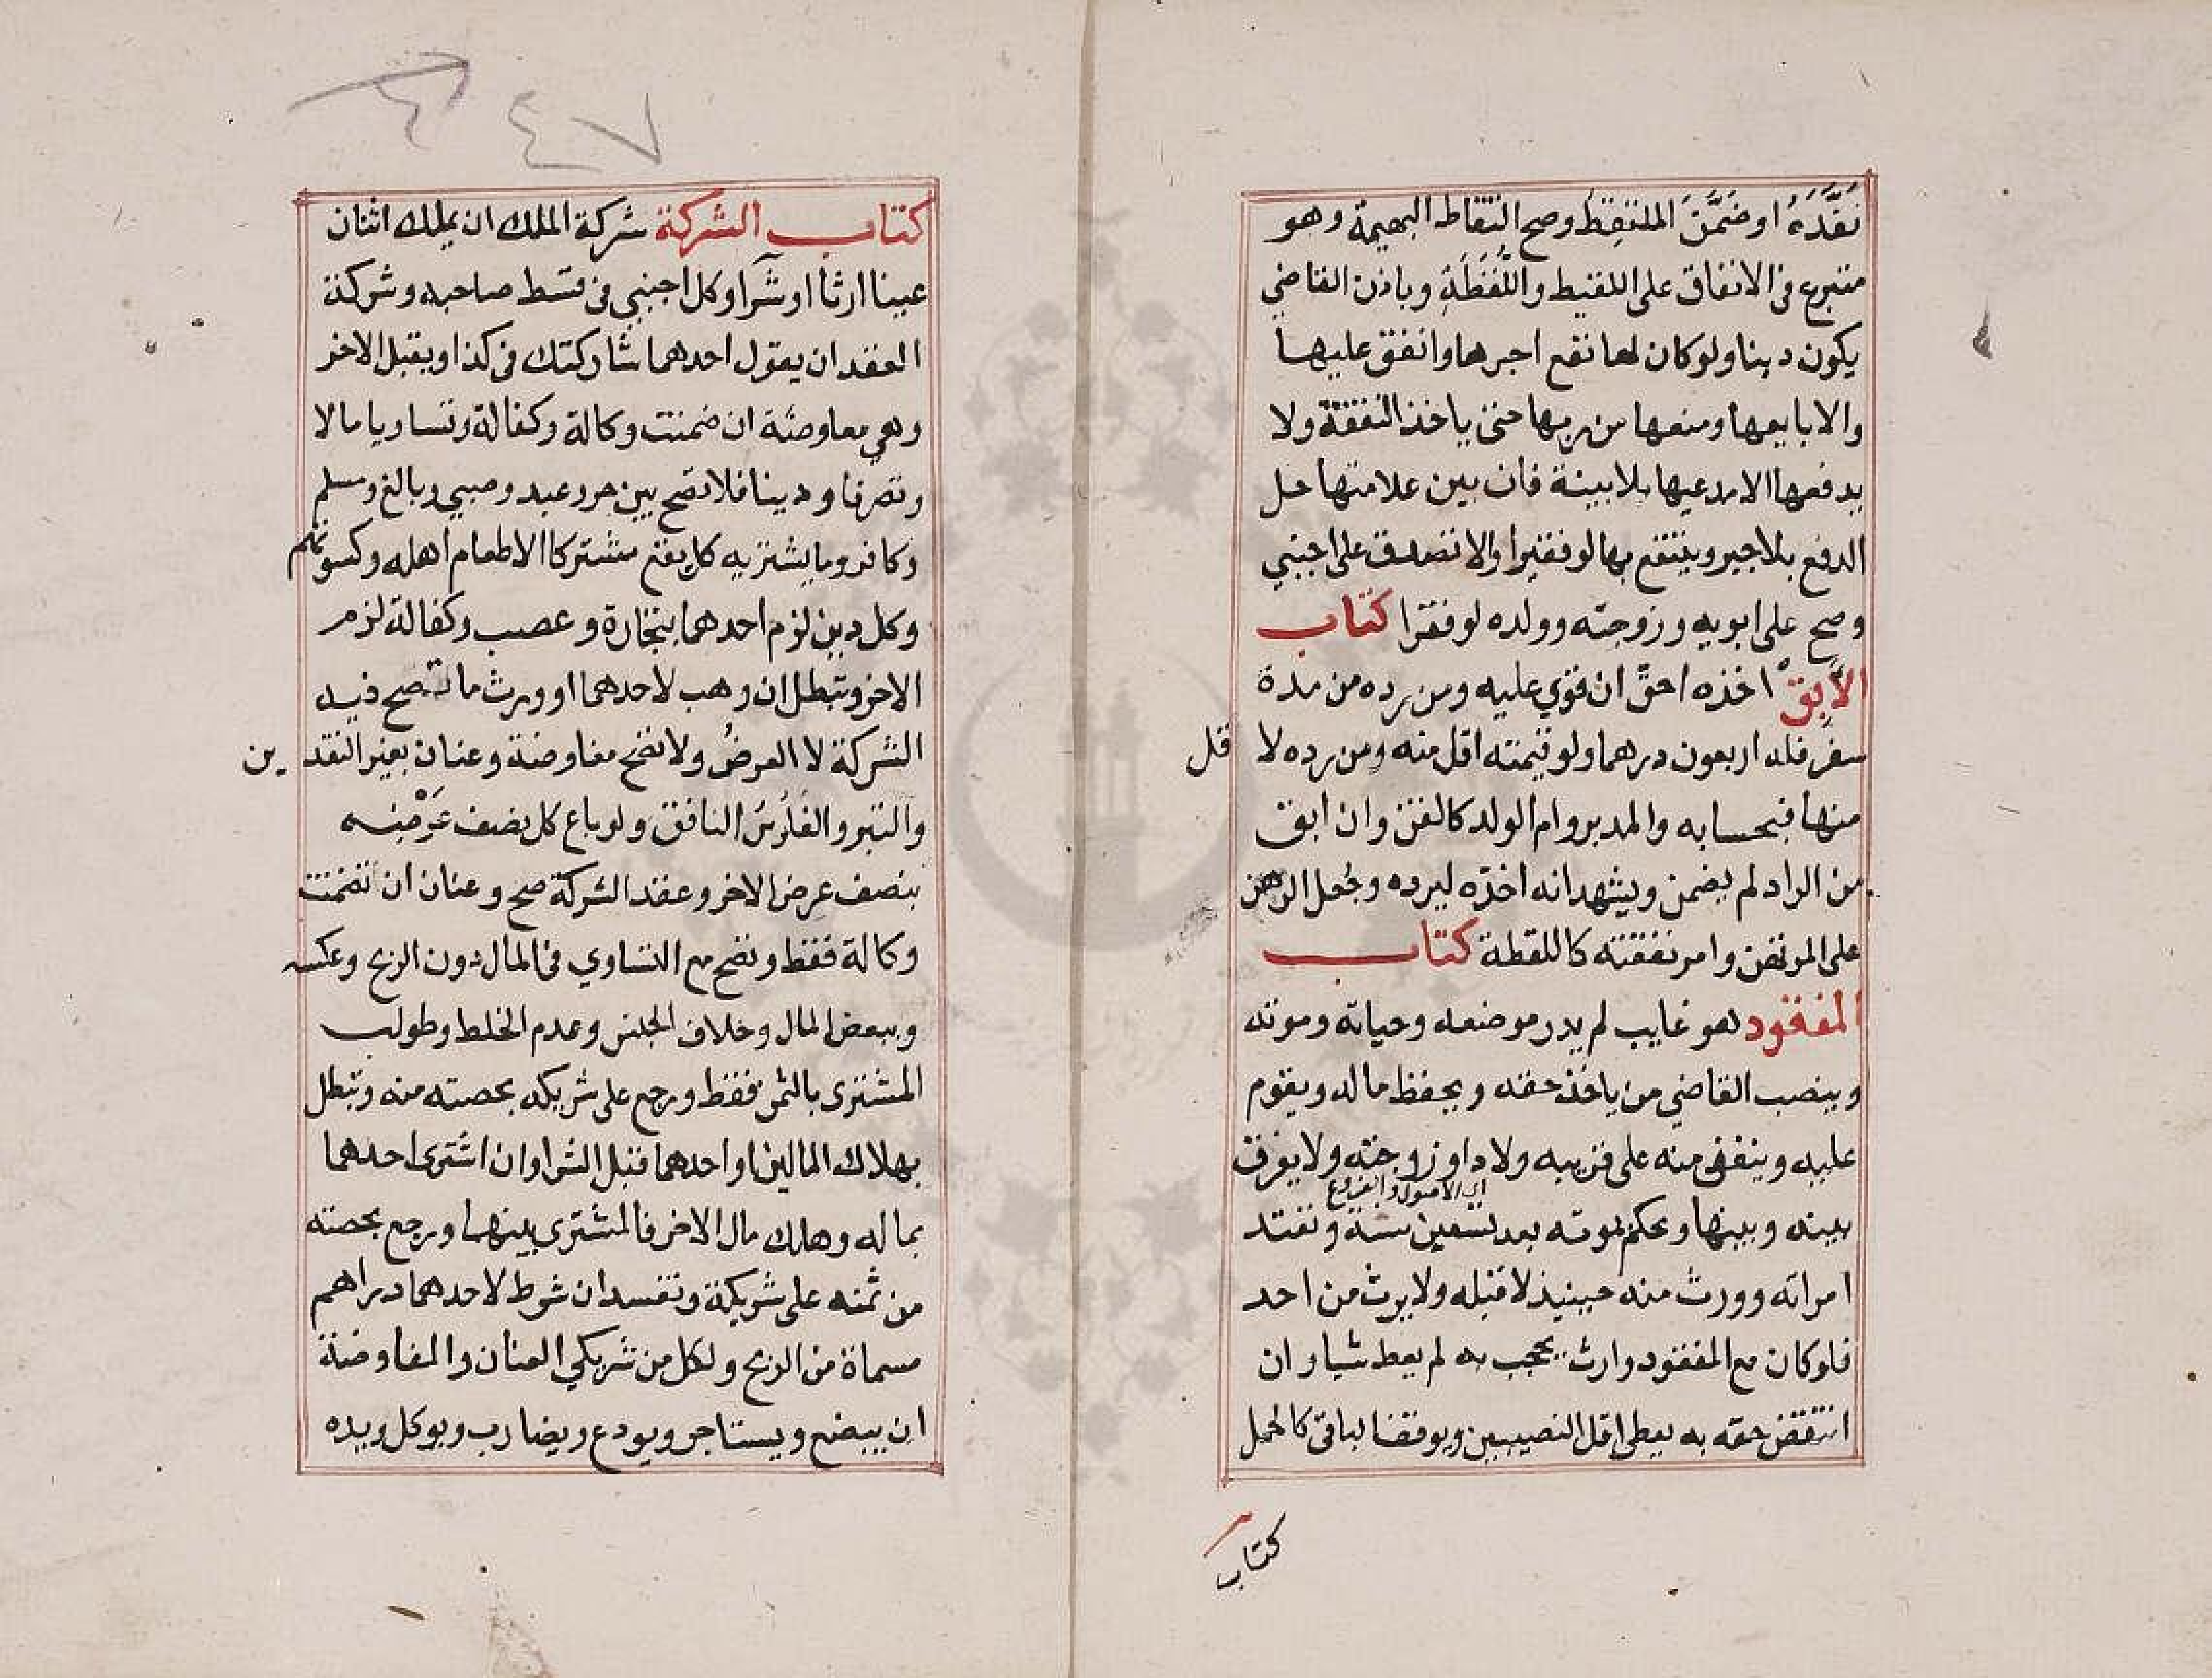 نَفَّذَهُ او ضَمَّنَ الملتقِط وصح التقاط البهيمة وهو
متبرع في الانفاق على اللقيط واللُّقَطَةِ وباذن القاضي
يكون دينا ولو كان لها نفع اجرها وانفق عليها
والا باعها ومنعها من ربها حتى ياخذ النفقة ولا
يدفعها الا مدعيها بلا بينة فان بين علامتها حل
الدفع بلا جبر وينتفع بها لو فقيرا والا تصدق على اجنبي
وصح على ابويه وزوجته وولده لو فقرا كتاب
الآبق اخذه احق ان قوي عليه ومن رده من مدة
سفر فله اربعون درهما ولو قيمته اقل منه ومن رده لا قل
منها فبحسابه والمدبر وام الولد كالقن وان ابق
من الراد لم يضمن ويشهد انه اخذه ليرده وجُعل الرهن
على المرتهن وامر نفقته كاللقطة كتاب
المفقود هو غايب لم يدر موضعه وحياته وموته
وينصب القاضي من ياخذ حقه ويحفظ ماله ويقوم
عليه وينفق منه على قريبه ولادا وزوجته ولا يفرق
اي الاصول والفروع
بينه وبينها وحكم بموته بعد تسعين سنة وتعتد
امراته وورث منه حينيذ لا قبله ولا يرث من احد
فلو كان مع المفقود وارث يحجب به لم يعط شيا وان
انتقض حقه به يعطى اقل النصيبين ويوقف الباقي كالحمل
كتاب
٤٧
كتاب الشركة شركة الملك ان يملك اثنان
عينا ارثا او شرآ وكل اجنبي في قسط صاحبه وشركة
العقد ان يقول احدهما شاركتك في كذا ويقبل الاخر
وهي مفاوضة ان ضمنت وكالة وكفالة وتساويا مالا
وتصرفا ودينا فلا تصح بين حر وعبد وصبي وبالغ ومسلم
وكافر وما يشتريه كل يقع مشتركا الا طعام اهله وكسوتهم
وكل دين لزم احدهما بتجارة وغصب وكفالة لزم
الاخر وتبطل ان وهب لاحدهما او ورث ما تصح فيه
الشركة لا العرضُ ولا تصح مفاوضة وعنان بغير النقد ين
والتبر والفلوس النافق ولو باع كل نصف عَرْضِه
بنصف عرض الاخر وعقد الشركة صح وعنان ان تضمنت
وكالة فقط وتصح مع التساوي في المال دون الربح وعكسه
وببعض المال وخلاف الجنس وعدم الخلط وطولب
المشترى بالثمن فقط ورجع على شريكه بحصته منه وتبطل
بهلاك المالين او احدهما قبل الشرا وان اشترى احدهما
بماله وهلك مال الاخر فالمشترى بينهما ورجع بحصته
من ثمنه على شريكه وتفسد ان شرط لاحدهما دراهم
مسماة من الربح ولكل من شريكي العنان والمفاوضة
ان يبضع ويستاجر ويودع ويضارب ويوكل ويده